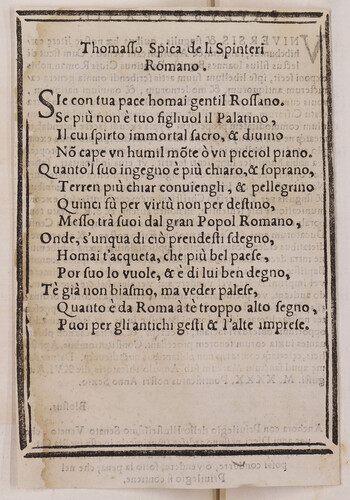 Thomasso Spica de li Spinteri
Romano.
SIe con tua pace homai gentil Rossano.
Se più non è tuo figliuol il Palatino,
Il cui spirto immortal sacro, & diuino
Nõ cape vn humil mõte ò vn picciol piano.
Quanto'l suo ingegno è più chiaro, & soprano,
Terren più chiar conuiengli, & pellegrino
Quinci sù per virtù non per destino,
Messo trà suoi dal gran Popol Romano,
Onde, s'unqua di ciò prendesti sdegno,
Homai t'acqueta, che più bel paese,
Por suo lo vuole, & è di lui ben degno,
Tè già non biasmo, ma veder palese,
Quanto è da Roma à tè troppo alto segno,
Puoi per gli antichi gesti & l'alte imprese.